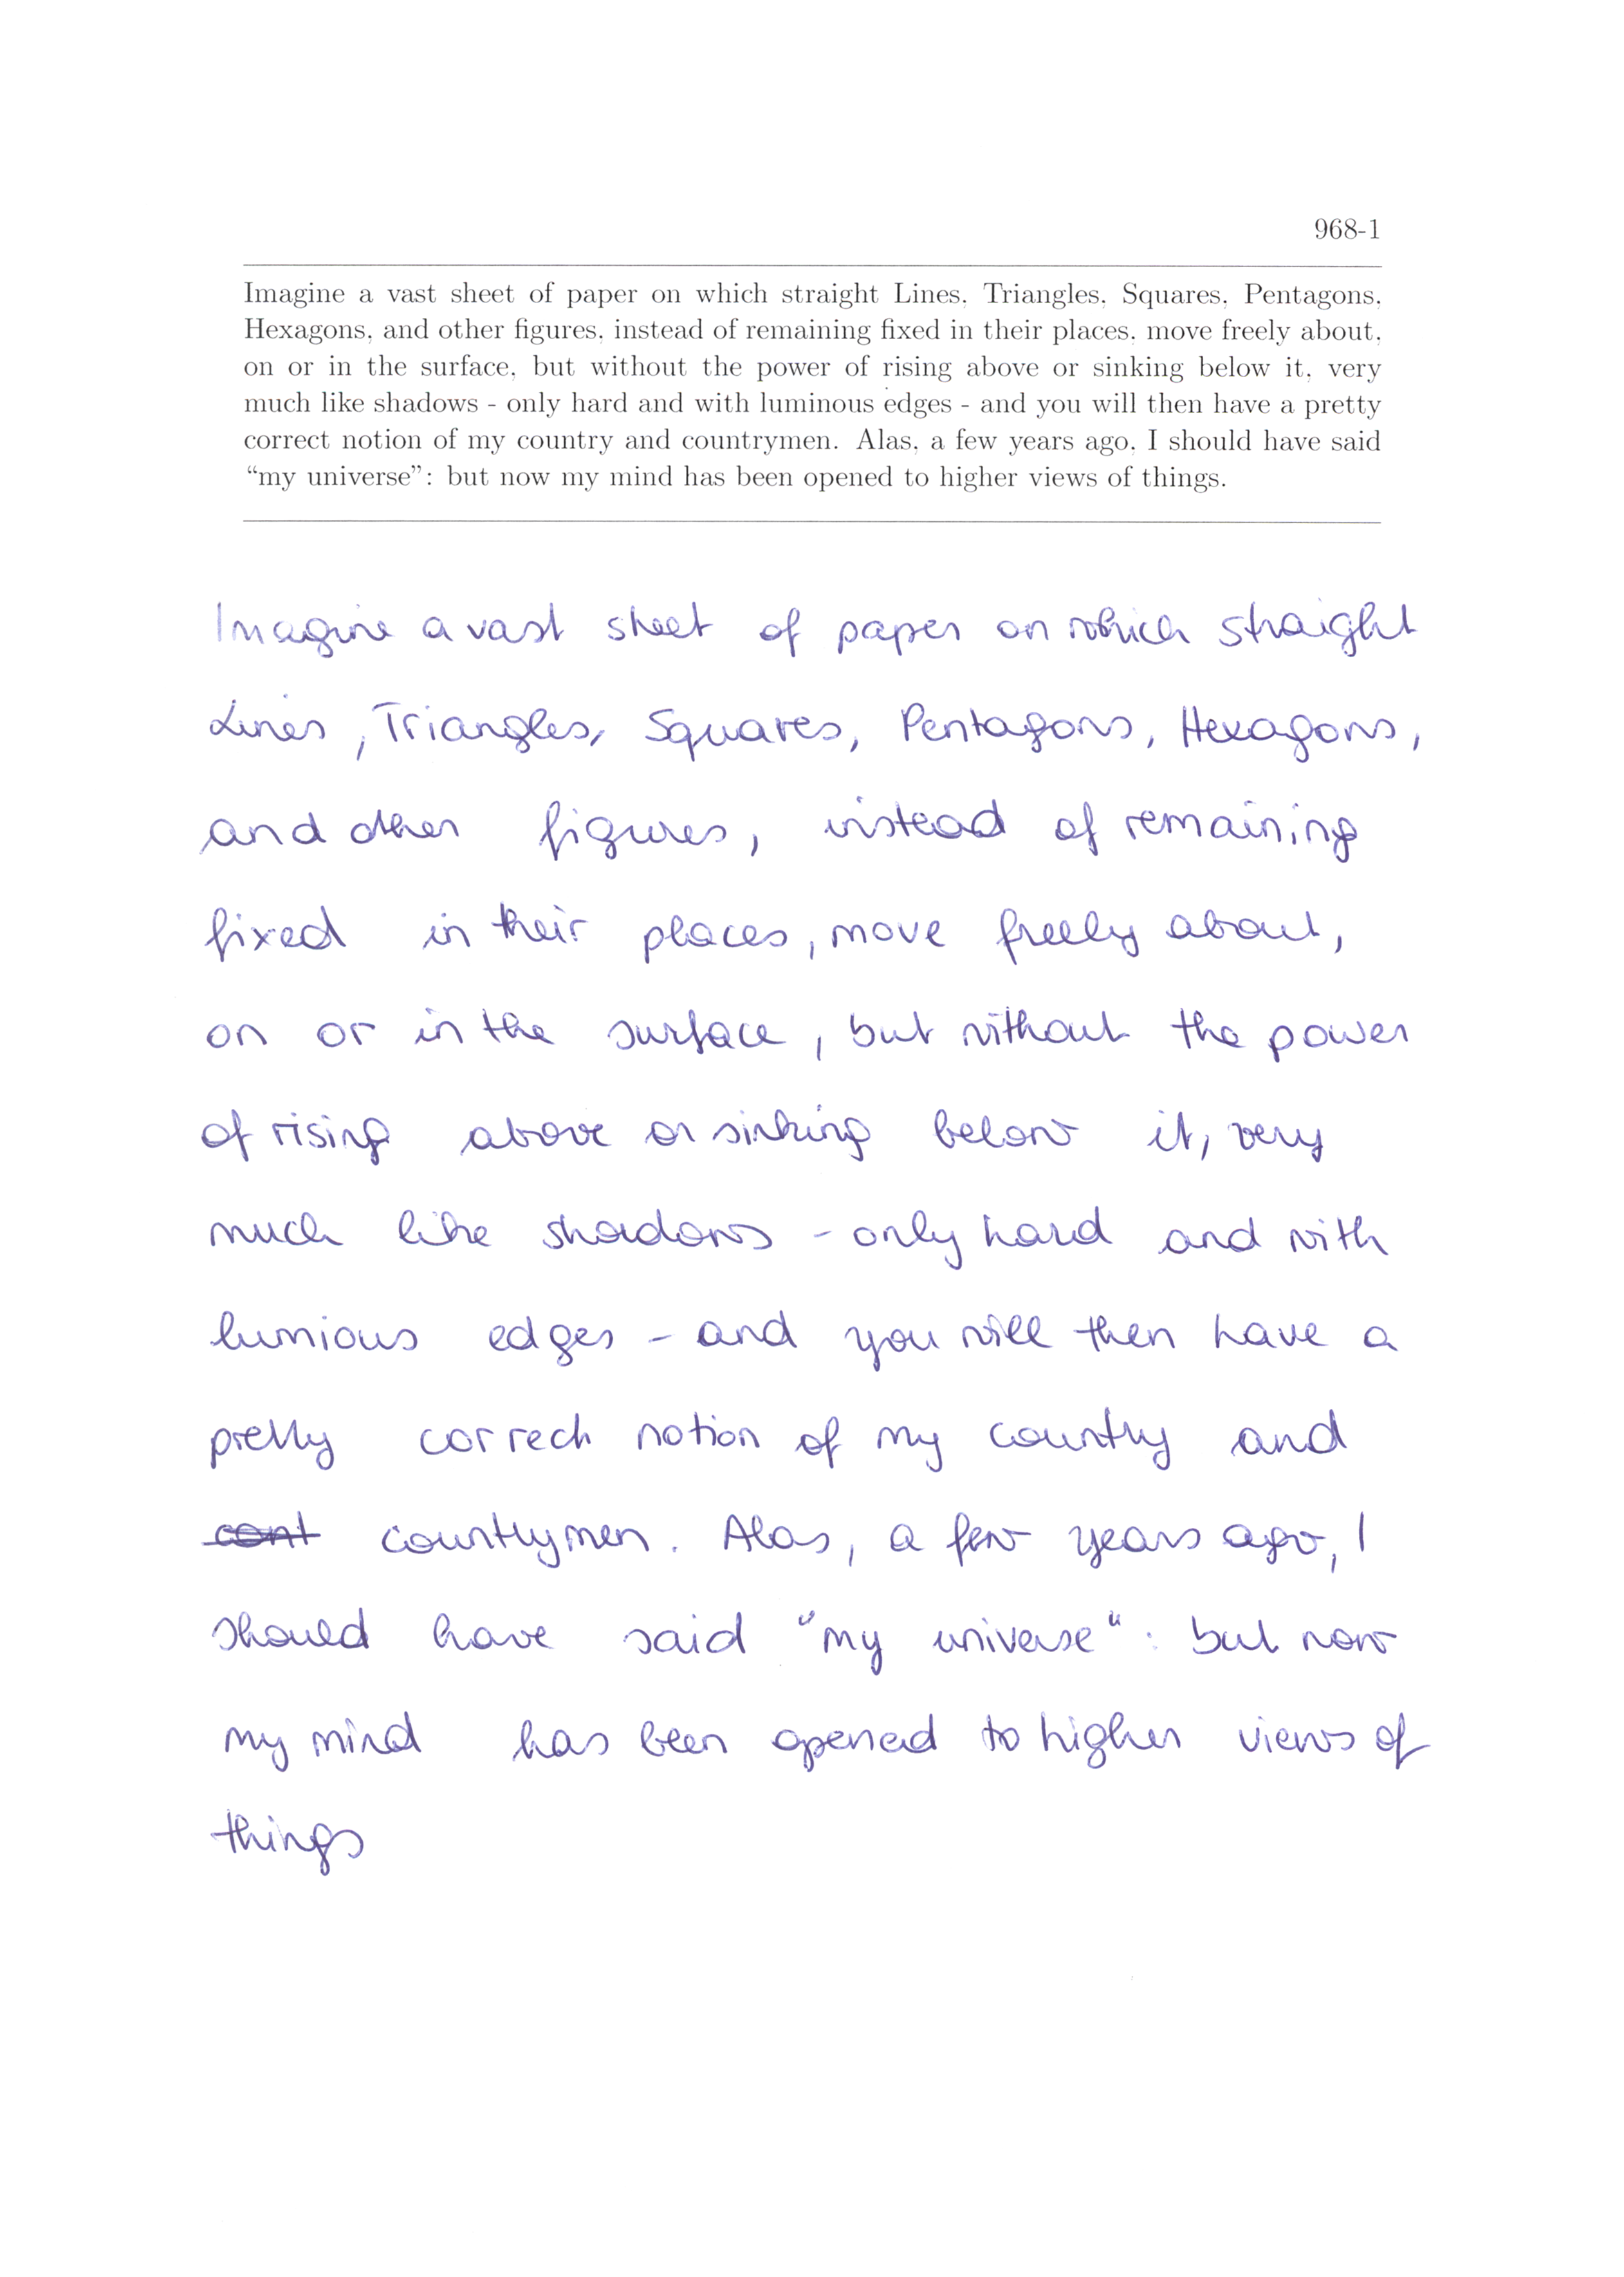 968-1
Imagine a vast sheet of paper on which straight Lines, Triangles, Squares, Pentagons,
Hexagons, and other figures, instead of remaining fixed in their places, move freely about,
on or in the surface, but without the power of rising above or sinking below it, very
much like shadows - only hard and with luminous edges - and you will then have a pretty
correct notion of my country and countrymen. Alas, a few years ago, I should have said
“my universe”: but now my mind has been opened to higher views of things.
Imagine a vast sheet of paper on which straight
Lines, Triangles, Squares, Pentagons, Hexagons,
and other figures, instead of remaining
fixed in their places, move freely about,
on or in the surface, but without the power
of rising above or sinking below it, very
much like shadows - only hard and with
lumious edges - and you will then have a
pretty correct notion of my country and
cont countrymen. Alas, a few years ago, I
should have said "my universe": but now
my mind has been opened to higher views of
things